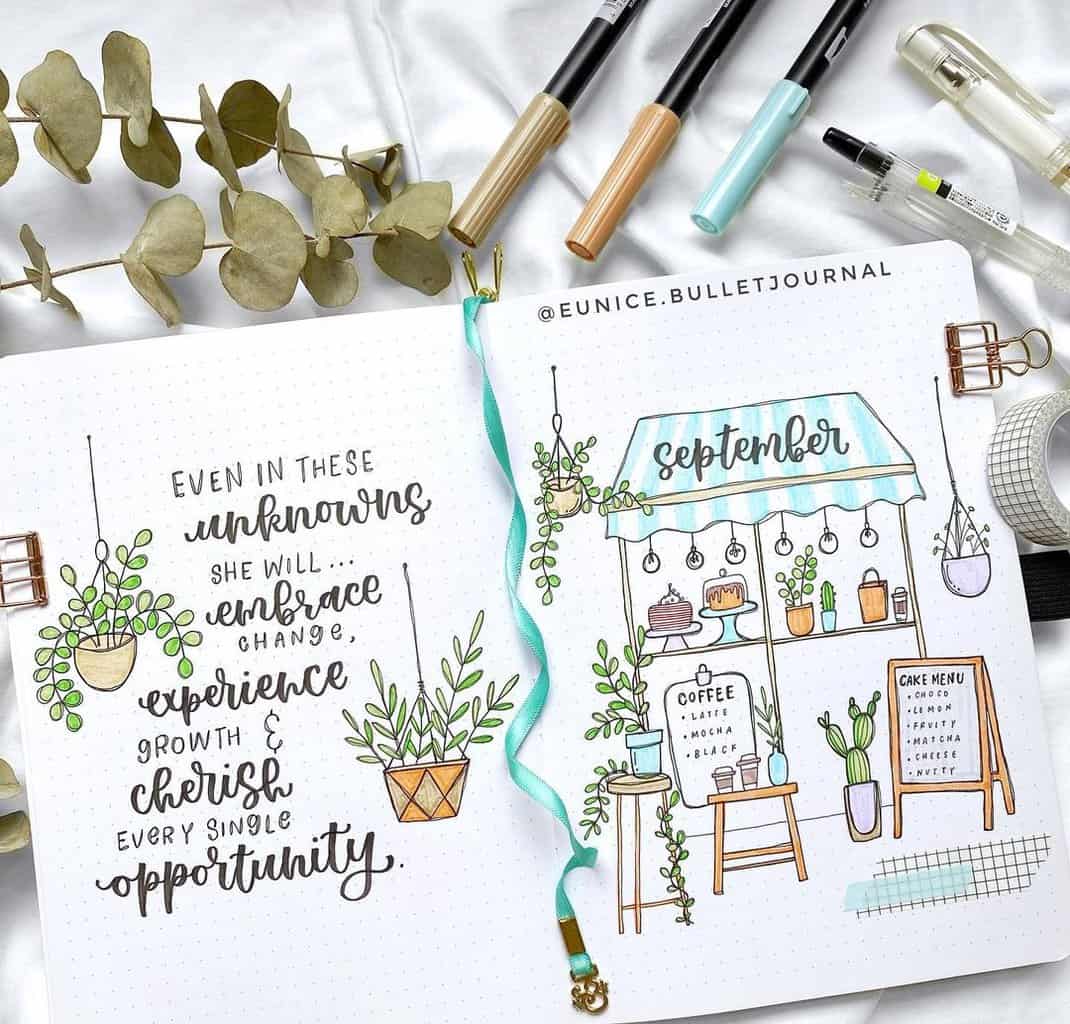 @EUNICE.BULLETJOURNAL
EVEN IN THESE
unknowns
SHE WILL...
embrace
CHANGE,
experience
GROWTH &
cherish
EVERY SINGLE
opportunity.
september
COFFEE
• LATTE
• MOCHA
• BLACK
CAKE MENU
• CHOCO
• LEMON
• FRUITY
• MATCHA
• CHEESE
• NUTTY